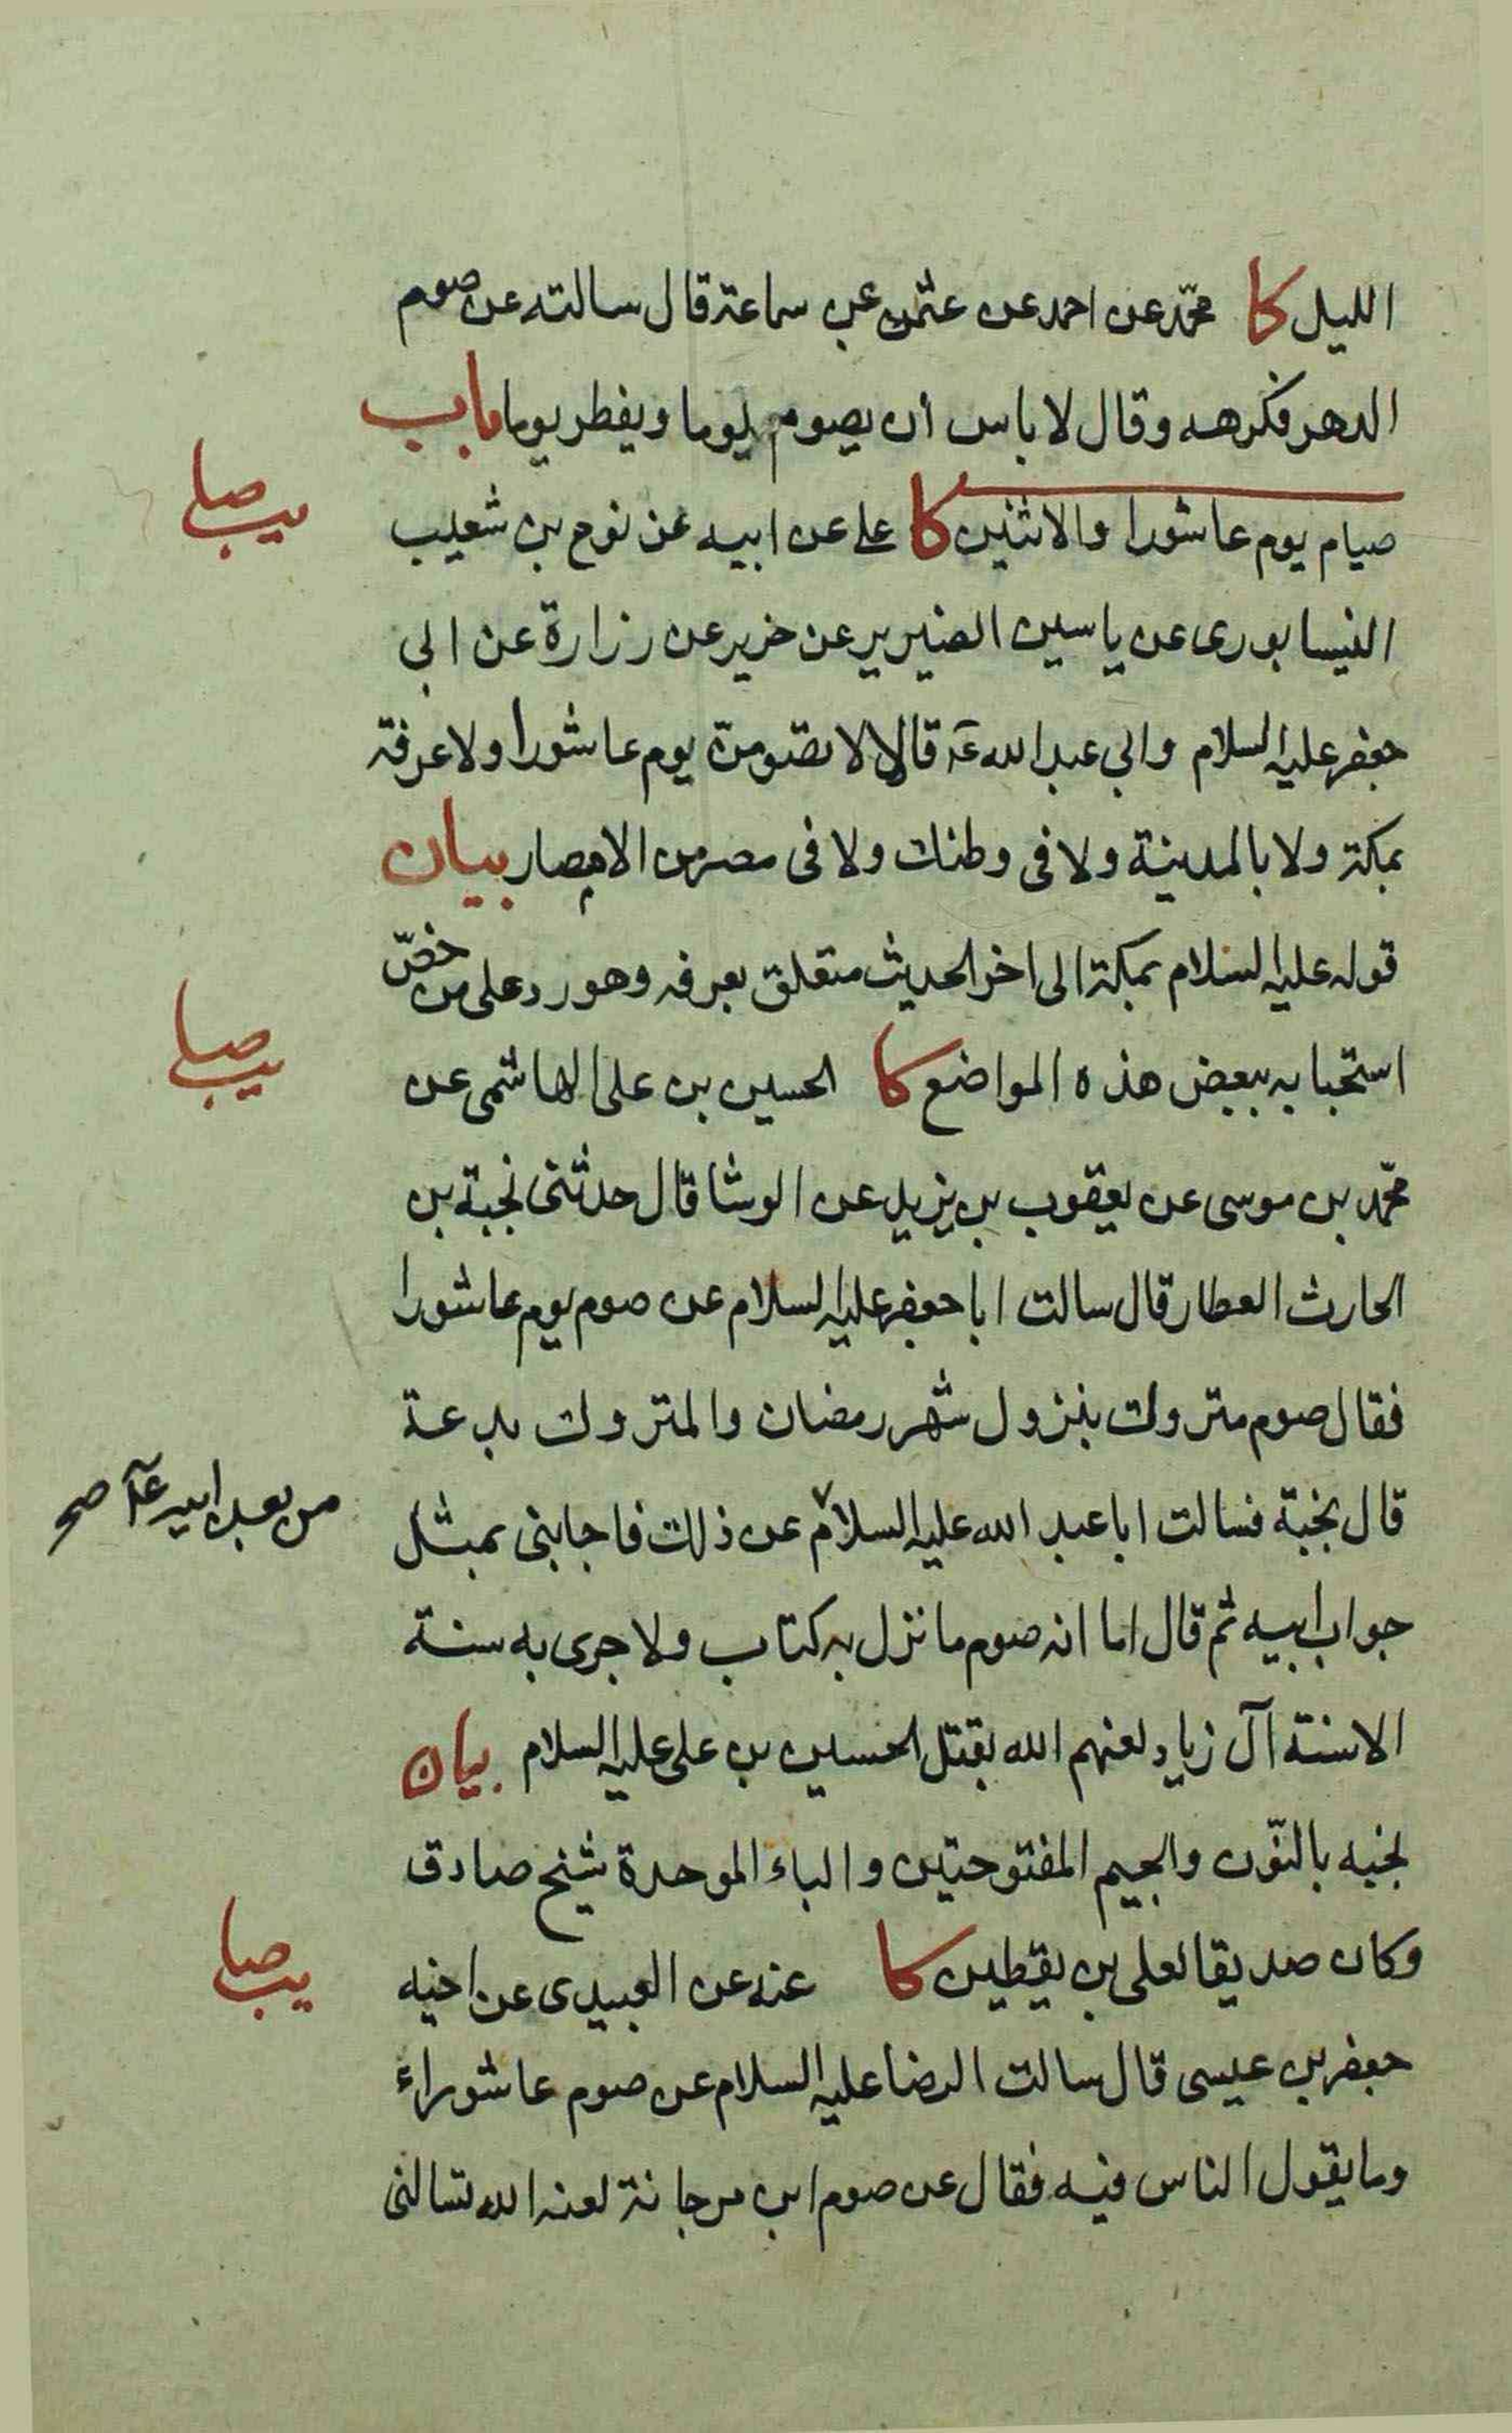 الليل كا محمّد عن احمد عن عثمن عن سماعة قال سالته عن صوم
الدهر فكرهه وقال لا باس ان يصوم يوما ويفطر يوما باب
صيام يوم عاشورا والاثنين كا على عن ابيه عن نوح بن شعيب
يب صا
النيسابورى عن ياسين الضرير عن حريز عن زرارة عن ابي
جعفر عليه السلام وابي عبد الله ع قالا لا تصومن يوم عاشورا ولا عرفة
بمكة ولا بالمدينة ولا فى وطنك ولا فى مصر من الامصار بيان
قوله عليه السلام بمكة الى اخر الحديث متعلق بعرفه وهو رد على من خصّ
استحبابه ببعض هذه المواضع كا الحسين بن على الهاشمى عن
يب صا
محمّد بن موسى عن يعقوب بن يزيد عن الوشا قال حدثنى نجبة بن
الحارث العطار قال سالت ابا جعفر عليه السلام عن صوم يوم عاشورا
فقال صوم متروك بنزول شهر رمضان والمتروك بدعة
قال نجبة فسالت ابا عبد الله عليه السلام عن ذلك فاجابنى بمثل
من بعد ابيه ع صح
جواب ابيه ثم قال اما انه صوم ما نزل به كتاب ولا جرى به سنة
الا سنة آل زياد لعنهم الله بقتل الحسين بن على عليه السلام بيان
نجبه بالنّون والجيم المفتوحتين والباء الموحدة شيخ صادق
وكان صديقا لعلى بن يقطين كا عنه عن العبيدى عن اخيه
يب صا
جعفر بن عيسى قال سالت الرضا عليه السلام عن صوم عاشوراء
وما يقول الناس فيه فقال عن صوم ابن مرجانة لعنه الله تسالنى